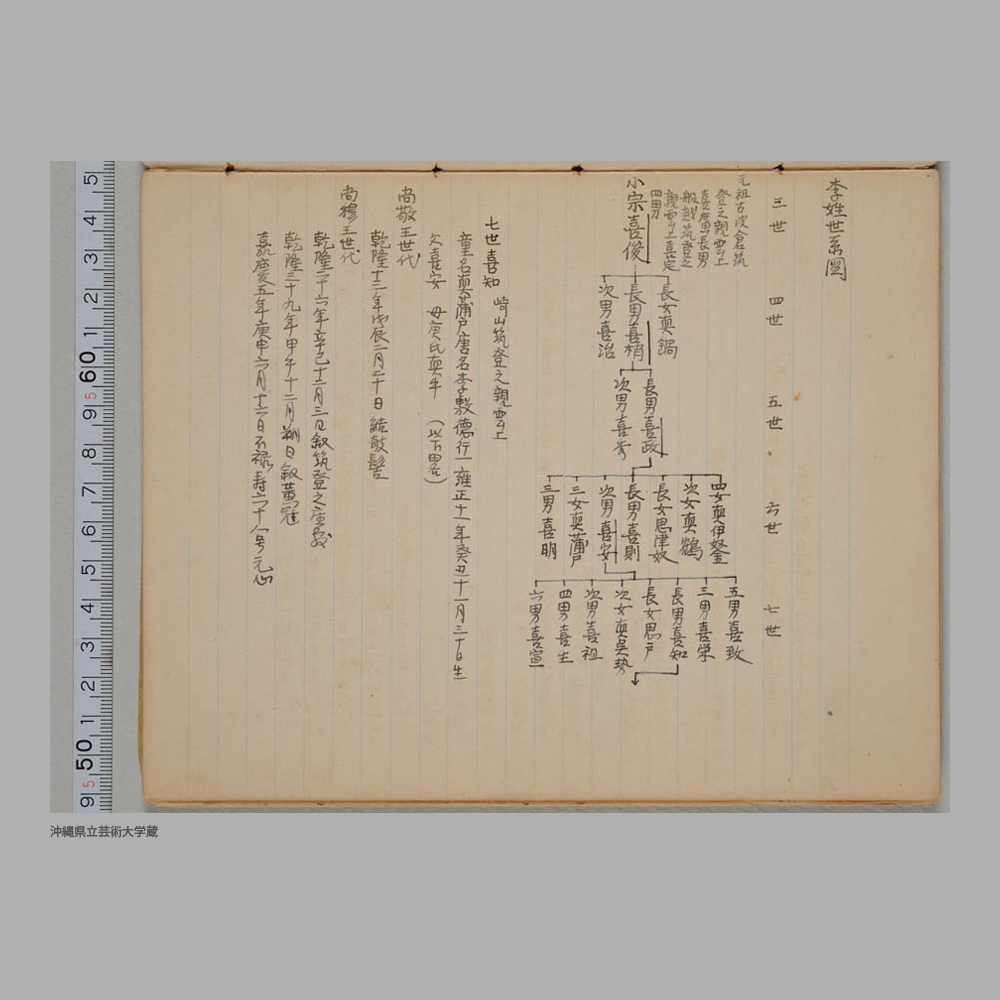 李姓世系圖
三世
四世
五世
六世
七世
元祖古波倉筑
登之親雲上
喜屋長男
船越筑登之
親雲上喜定
四男
小宗喜俊
長女真鍋
長男喜梢
次男喜治
長男喜政
次男喜秀
四女真伊奴釜
次女真鶴
長女思津奴
長男喜則
次男喜安
三女真蒲戸
三男喜明
五男喜致
三男喜栄
長男喜知
長女思戸
次女真呉勢
次男喜祖
四男喜生
六男喜宣
七世喜知 崎山筑登之親雲上
童名真蒲戸唐名李敷德行一雍正十一年癸丑十一月三十日生
父喜安 母庾氏真牛 (以下畧)
尚敬王世代
乾隆十三年戊辰二月二十日結敧髻
尚穆王世代
乾隆二十六年辛巳十二月三日叙筑登之座敷
乾隆三十九年甲午十二月朔日叙黄冠
嘉慶五年庚申六月十六日不禄寿六十八号元心
沖縄県立芸術大学蔵
5 4 3 2 1 60 9 8 7 6 5 4 3 2 1 50 9
5
5